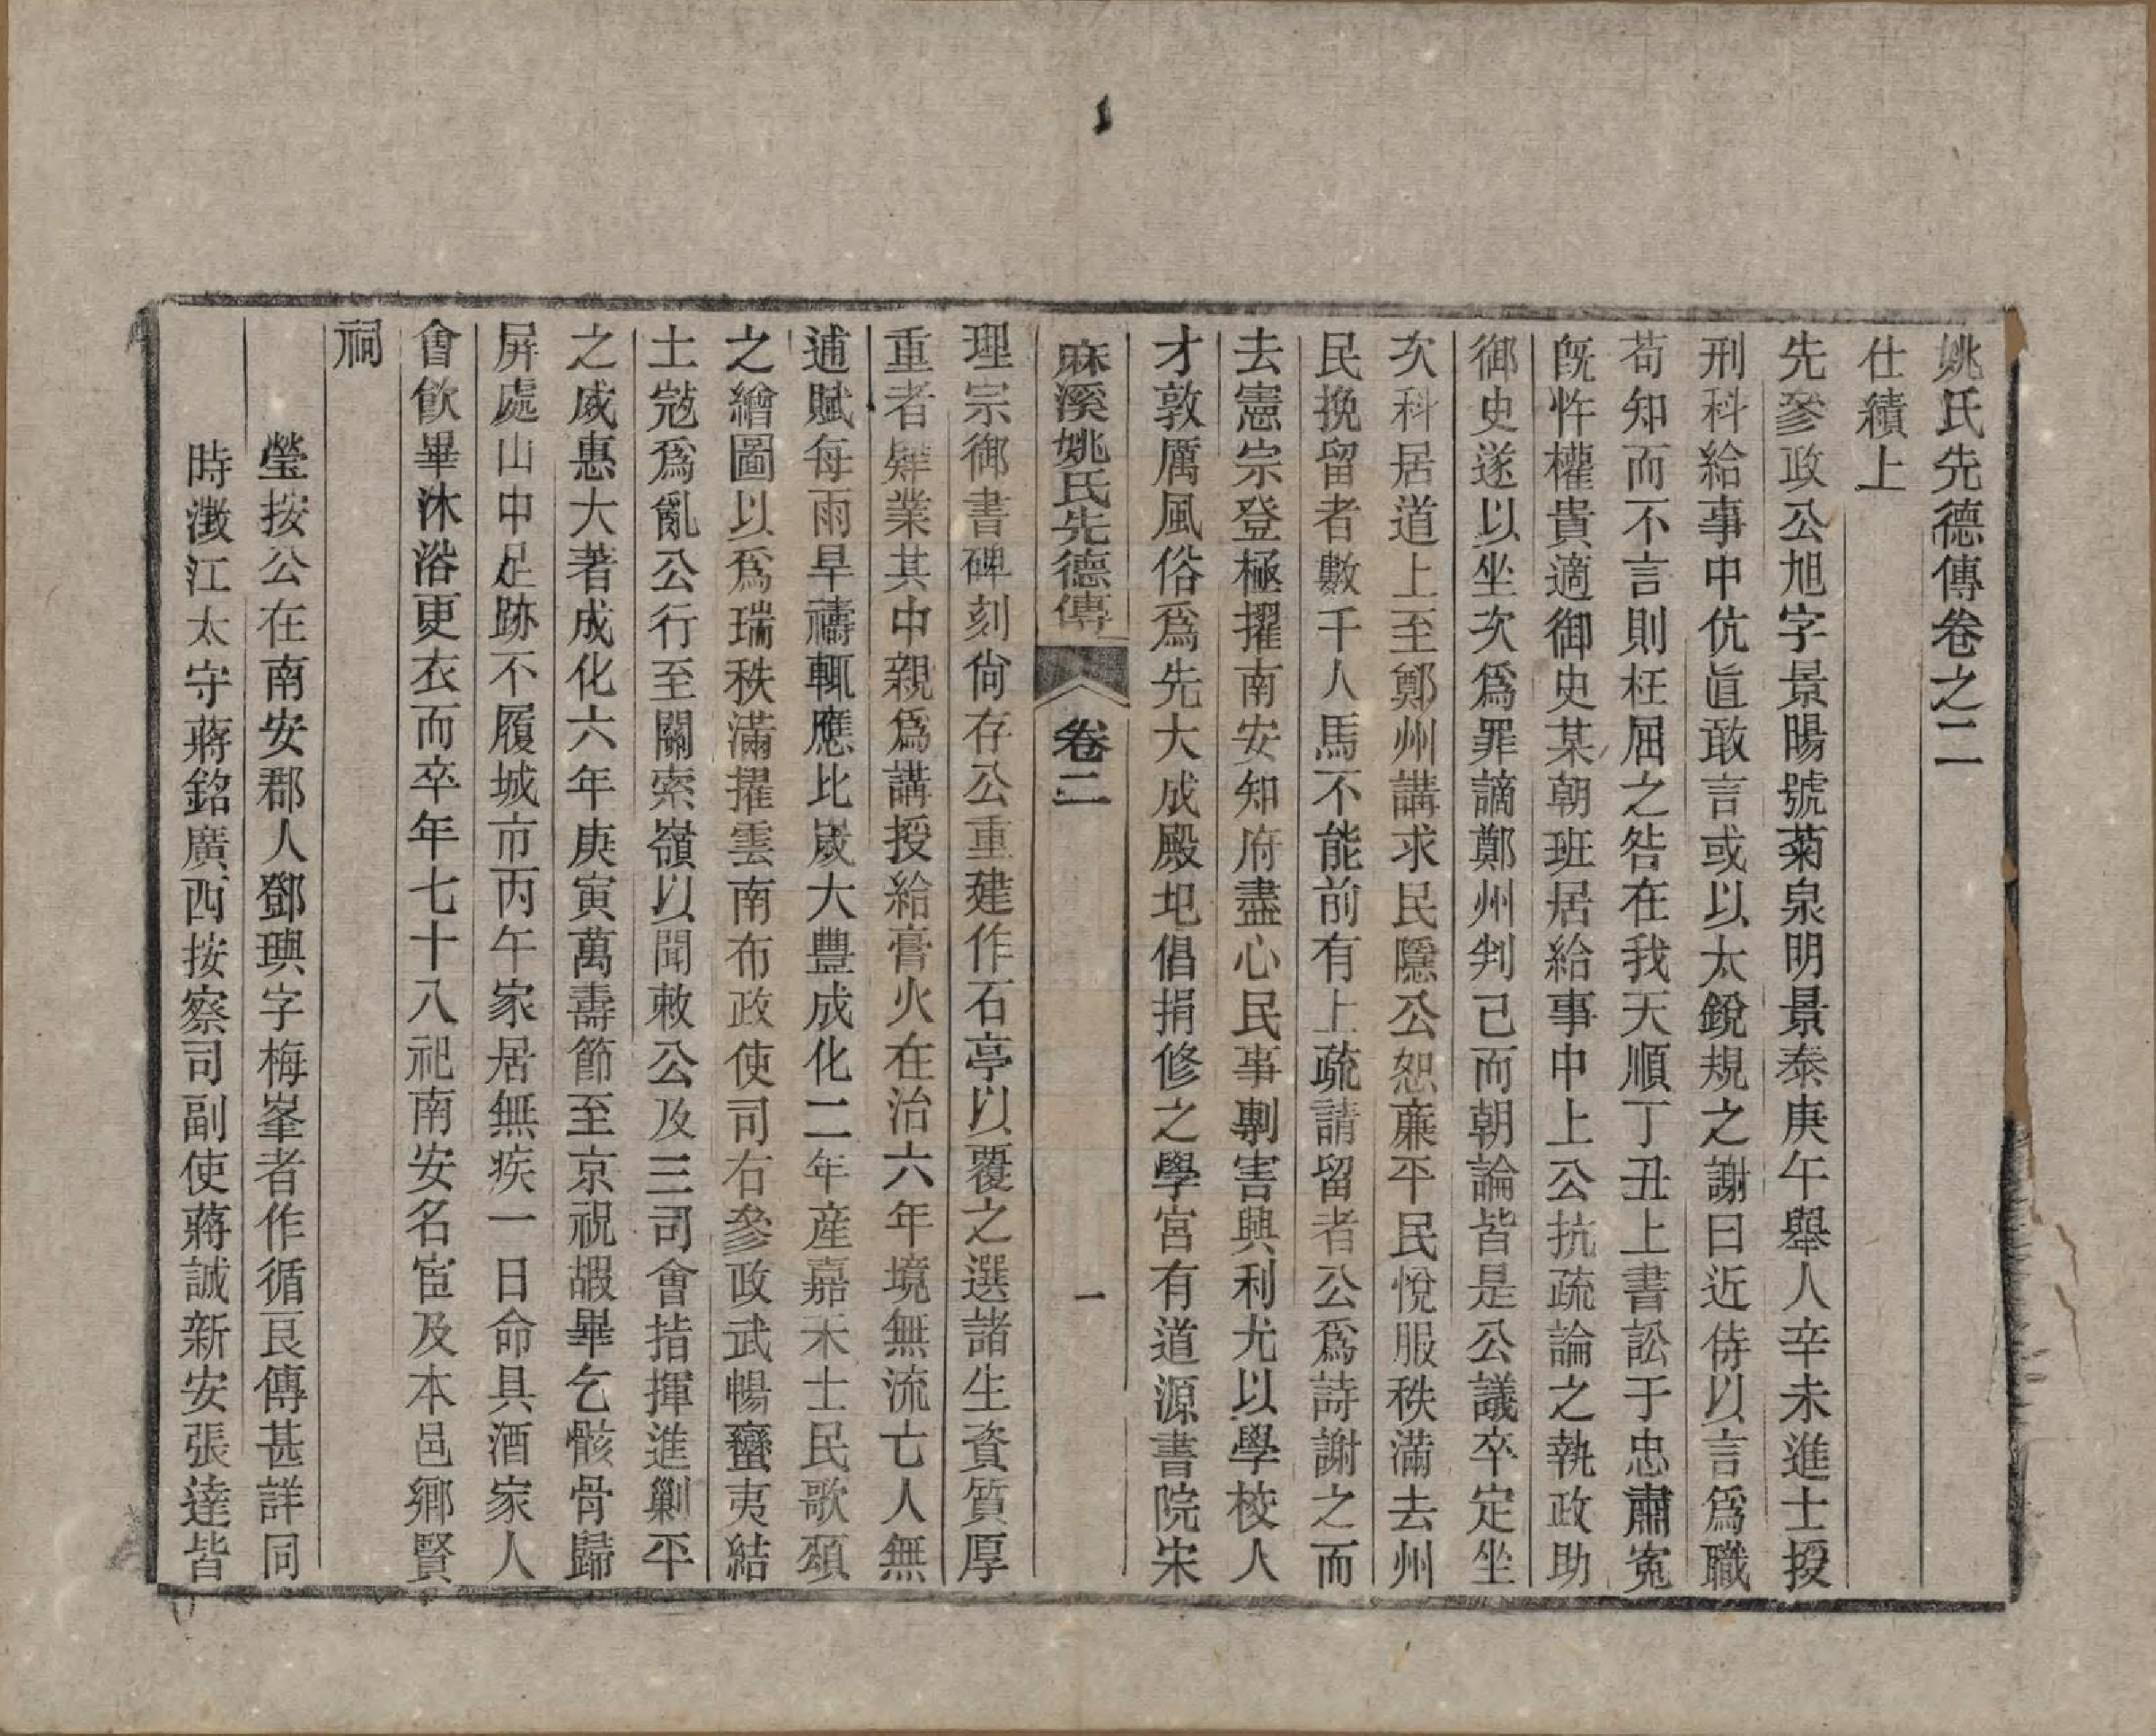 姚氏先德傳卷之二
仕績上
先參政公旭字景暘號菊泉明景泰庚午舉人辛未進士授
刑科給事中伉直敢言或以太銳規之謝曰近侍以言爲職
苟知而不言則枉屈之咎在我天順丁丑上書訟于忠肅寃
旣忤權貴適御史某朝班居給事中上公抗疏論之執政助
御史遂以坐次爲罪謫鄭州判已而朝論皆是公議卒定坐
次科居道上至鄭州講求民隱公恕廉平民悅服秩滿去州
民挽留者數千人馬不能前有上疏請留者公爲詩謝之而
去憲宗登極擢南安知府盡心民事剸害興利尤以學校人
才敦厲風俗爲先大成殿圯倡捐修之學宮有道源書院宋
麻溪姚氏先德傳 卷二 一
理宗御書碑刻尙存公重建作石亭以覆之選諸生資質厚
重者肄業其中親爲講授給膏火在治六年境無流亡人無
逋賦每雨旱禱輒應比歲大豐成化二年産嘉禾士民歌頌
之繪圖以爲瑞秩滿擢雲南布政使司右參政武暢蠻夷結
土寇爲亂公行至關索嶺以聞敕公及三司會指揮進剿平
之威惠大著成化六年庚寅萬壽節至京祝嘏畢乞骸骨歸
屏處山中足跡不履城市丙午家居無疾一日命具酒家人
會飮畢沐浴更衣而卒年七十八祀南安名宦及本邑鄉賢
祠
瑩按公在南安郡人鄧璵字梅峯者作循良傳甚詳同
時澂江太守蔣銘廣西按察司副使蔣誠新安張達皆